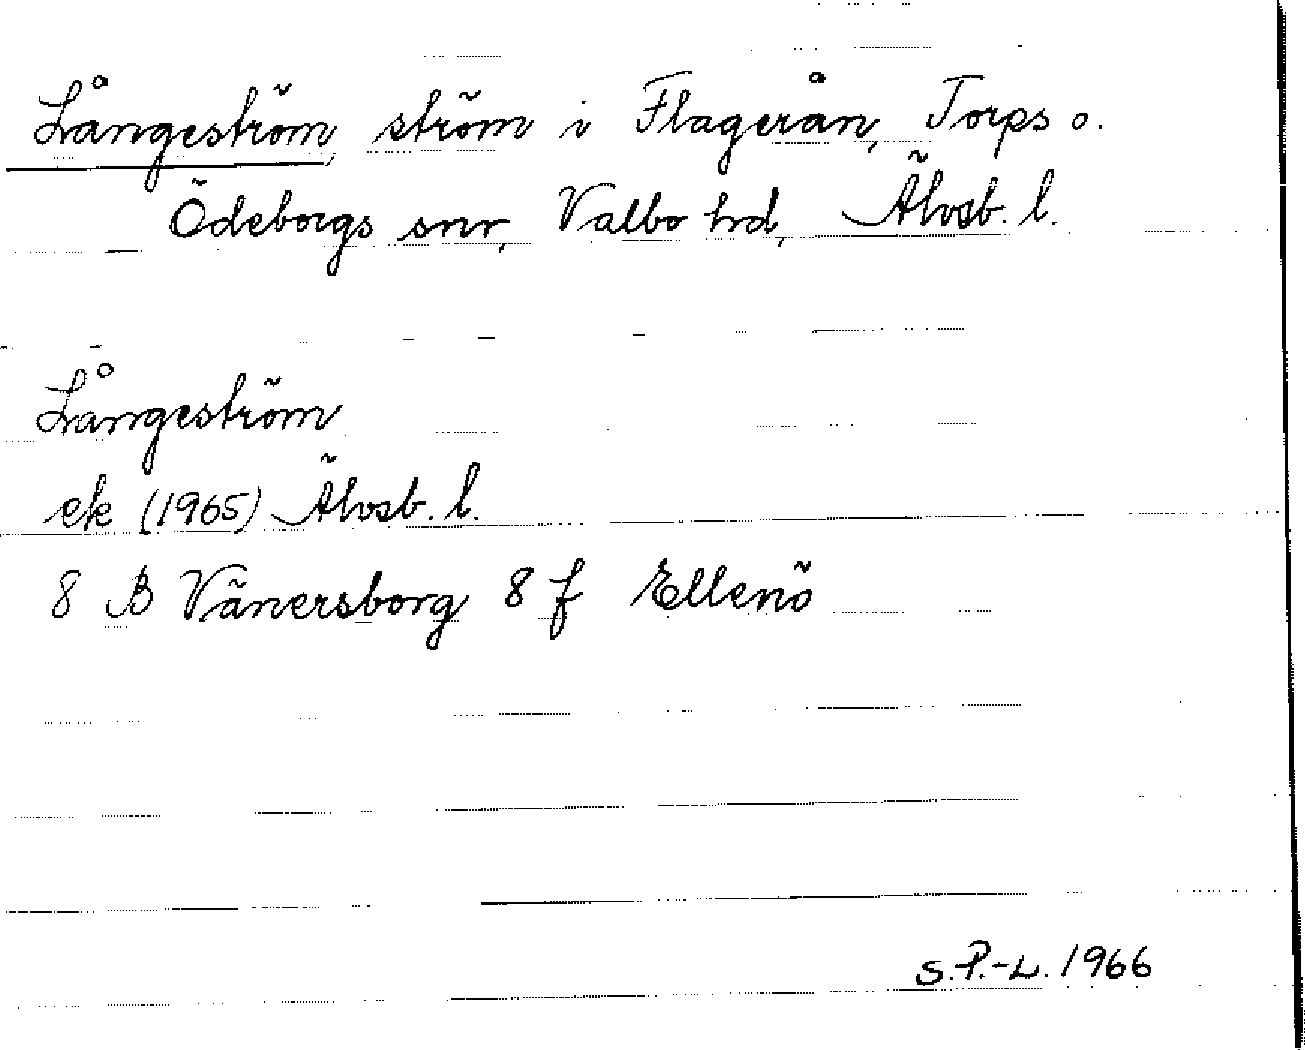 Långeström, ström i Flagerån, Torps o.
Ödeborgs snr, Valbo hd, Älvsb. l.
Långeström
ek (1965) Älvsb. l.
8 B Vänersborg 8 f Ellenö
S.P.-L. 1966